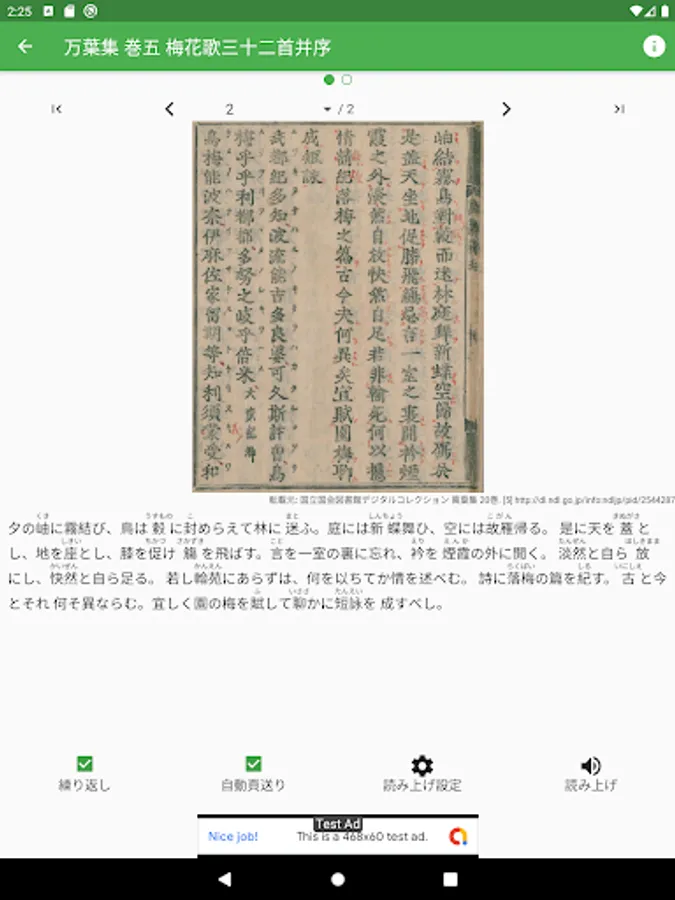 2:25
万葉集 巻五 梅花歌三十二首并序
2 / 2
岫結霧鳥對縠而迷林庭舞新蝶空歸故鴈於
是蓋天坐地促膝飛觴忘言一室之裏開衿煙
霞之外淡然自放快然自足若非翰苑何以攄
情請紀落梅之篇古今夫何異矣宜賦園梅聊
成短詠
武都紀多知波流能吉多良婆可久斯許曽烏
梅乎乎利都都多努之岐乎倍米
烏梅能波奈伊麻佐家留期等知利須義受和
転載元: 国立国会図書館デジタルコレクション 萬葉集 20巻. [5] http://dl.ndl.go.jp/info:ndljp/pid/2544287
夕の岫に霧結び、鳥は 縠 に封めらえて林に 迷ふ。庭には新 蝶舞ひ、空には故雁帰る。 是に天を 蓋 と
し、地を座とし、膝を促け 觴 を飛ばす。言を一室の裏に忘れ、衿を 煙霞の外に開く。 淡然と自ら 放
にし、快然と自ら足る。 若し翰苑にあらずは、何を以ちてか情を述べむ。 詩に落梅の篇を紀す。 古 と今
とそれ 何そ異ならむ。宜しく園の梅を賦して聊かに短詠を 成すべし。
繰り返し
自動頁送り
読み上げ設定
読み上げ
Test Ad
Nice job!
This is a 468x60 test ad.